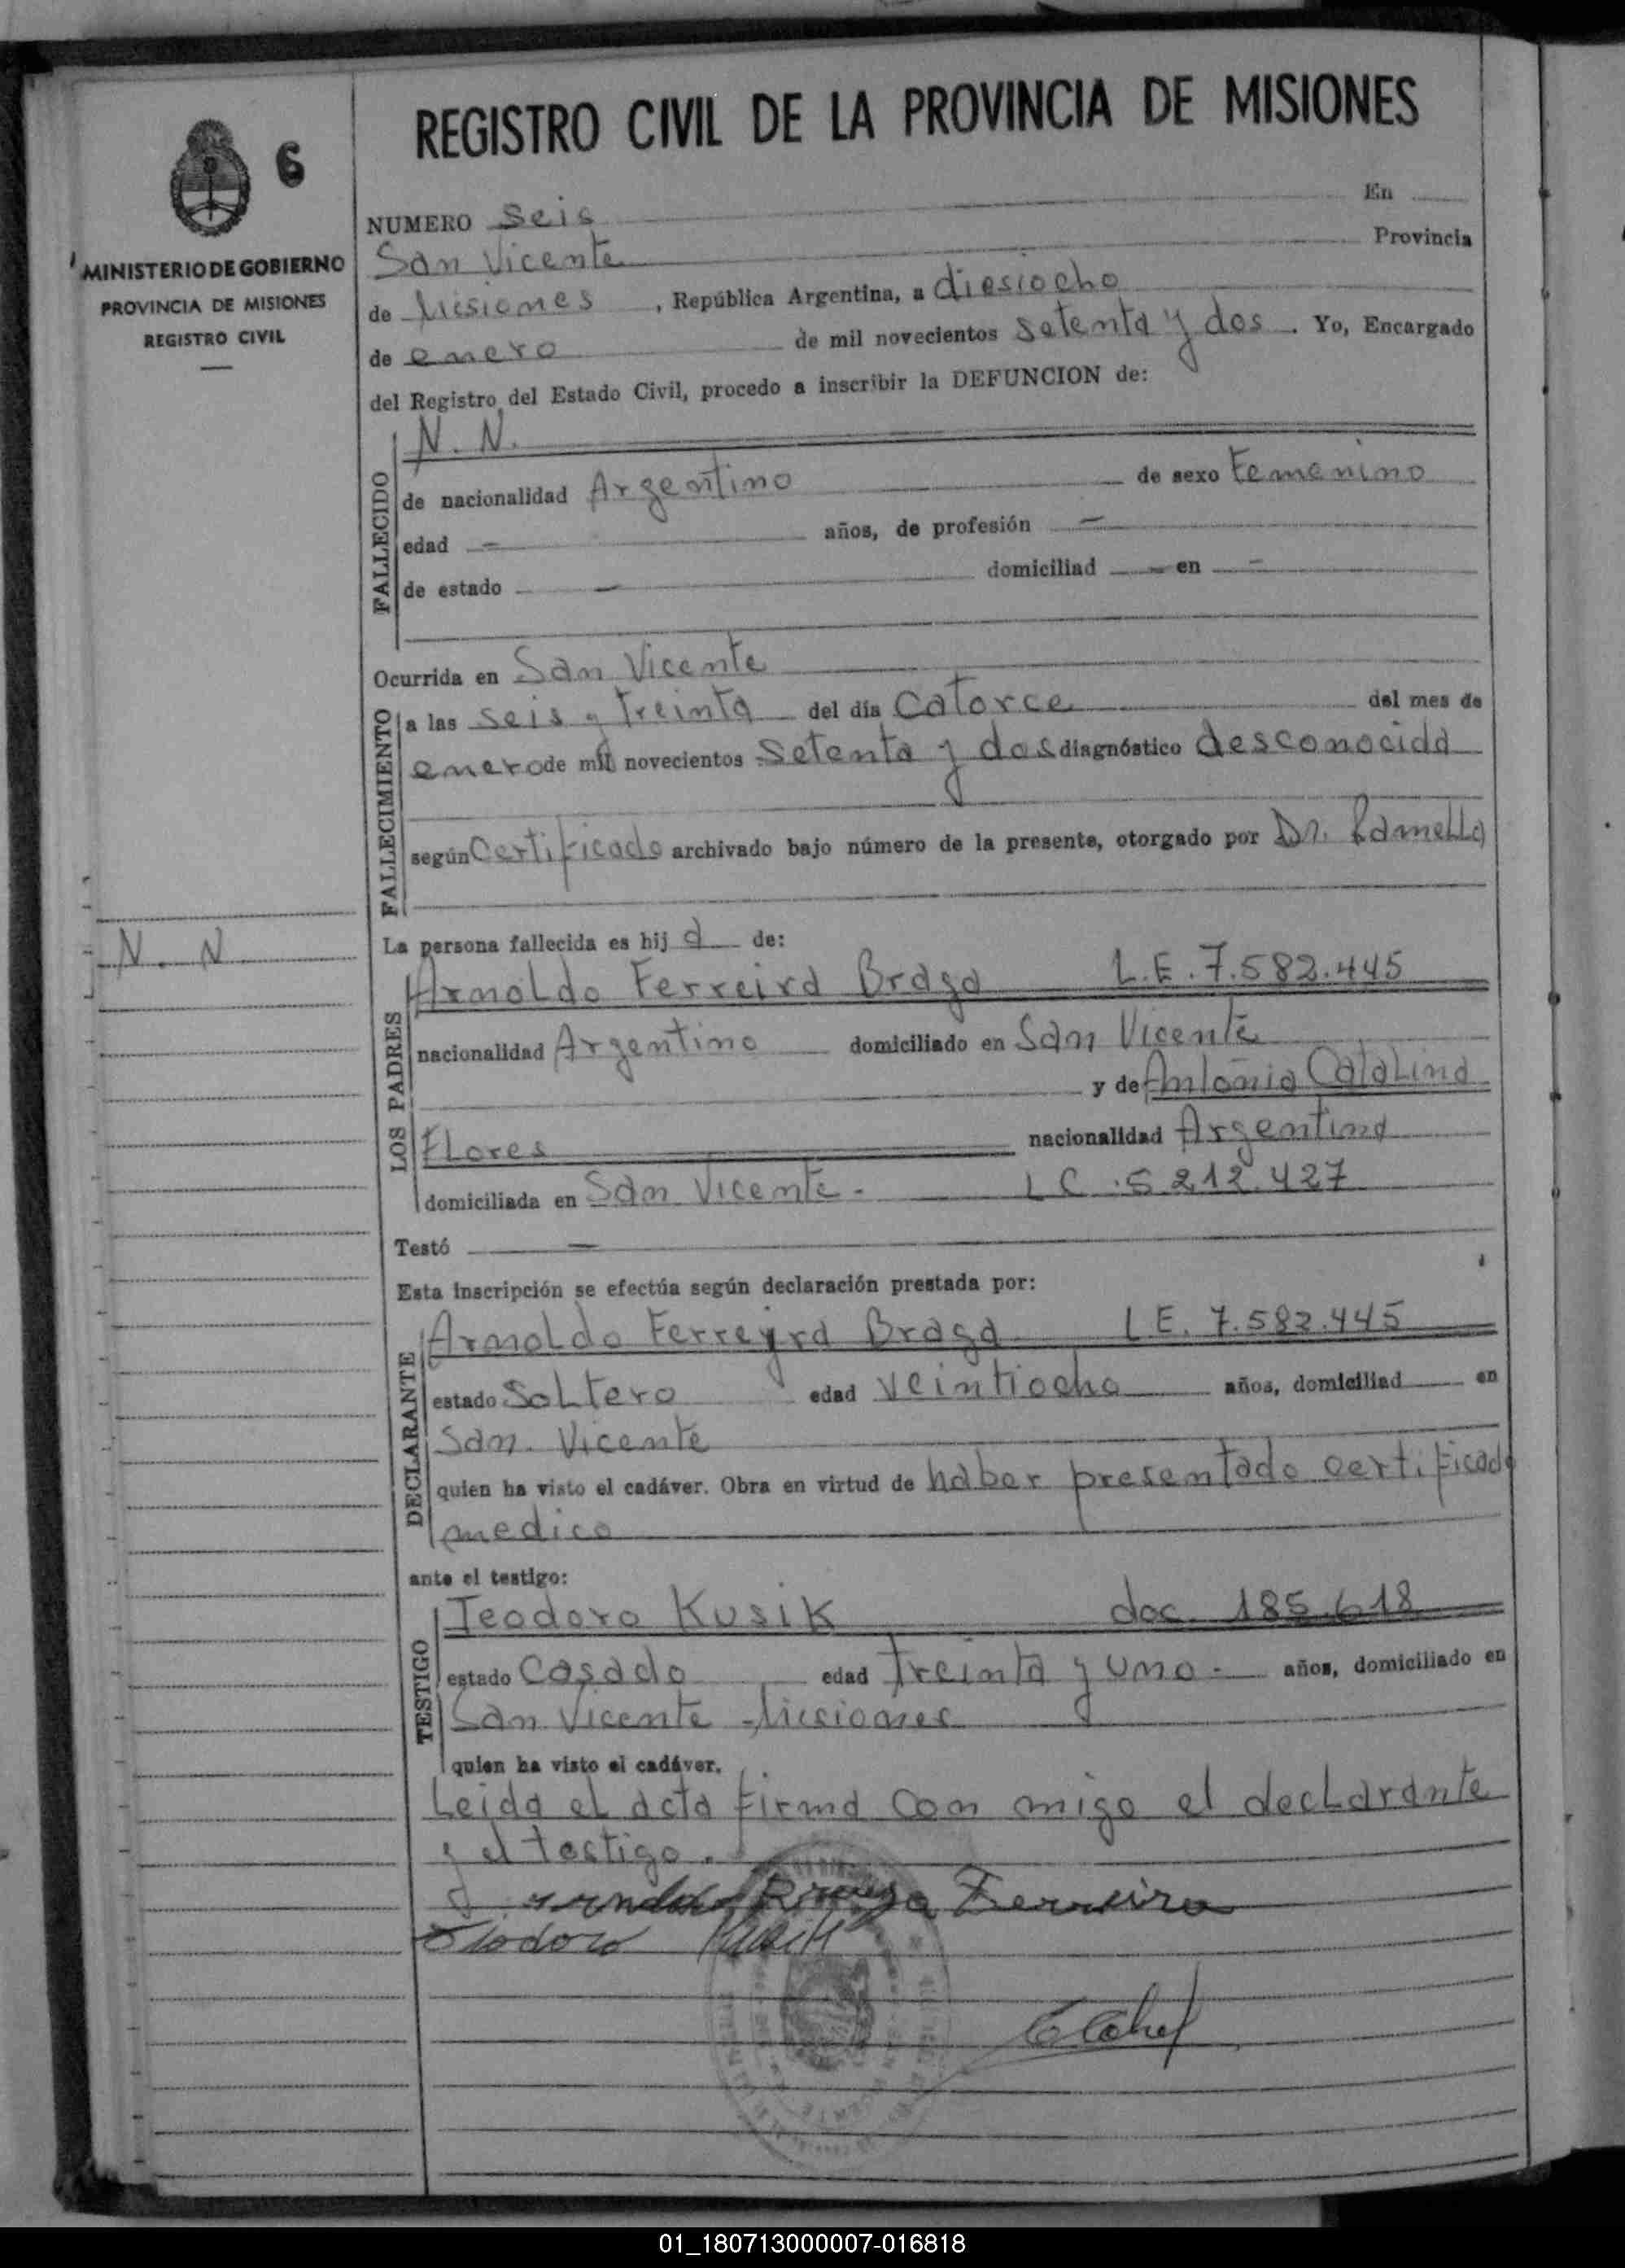 REGISTRO CIVIL DE LA PROVINCIA DE MISIONES
6
MINISTERIO DE GOBIERNO
PROVINCIA DE MISIONES
REGISTRO CIVIL
NUMERO Seis En
San Vicente Provincia
de Misiones, República Argentina, a diesiocho
de enero de mil novecientos setenta y dos. Yo, Encargado
del Registro del Estado Civil, procedo a inscribir la DEFUNCION de:
FALLECIDO
N. N.
de nacionalidad Argentino de sexo Femenino
edad - años, de profesión -
de estado - domiciliad - en -
Ocurrida en San Vicente
FALLECIMIENTO
a las seis y treinta del día Catorce del mes de
enero de mil novecientos setenta y dos diagnóstico desconocida
según Certificado archivado bajo número de la presente, otorgado por Dr. Ramella
N. N
La persona fallecida es hij a de:
LOS PADRES
Arnoldo Ferreira Braga L.E. 7.582.445
nacionalidad Argentino domiciliado en San Vicente
y de Antonia Catalina
Flores nacionalidad Argentina
domiciliada en San Vicente. L C. 5.212.427
Testó -
Esta inscripción se efectúa según declaración prestada por:
DECLARANTE
Arnoldo Ferreyra Braga L E. 7.582.445
estado Soltero edad veintiocho años, domiciliad en
San. Vicente
quien ha visto el cadáver. Obra en virtud de haber presentado certificado
medico
ante el testigo:
TESTIGO
Teodoro Kusik doc. 185.618
estado Casado edad treinta y uno.- años, domiciliado en
San Vicente - Misiones
quien ha visto el cadáver.
Leida el acta firma con migo el declarante
y el testigo.
Braga Ferreira
Teodoro Kusik
01_180713000007-016818